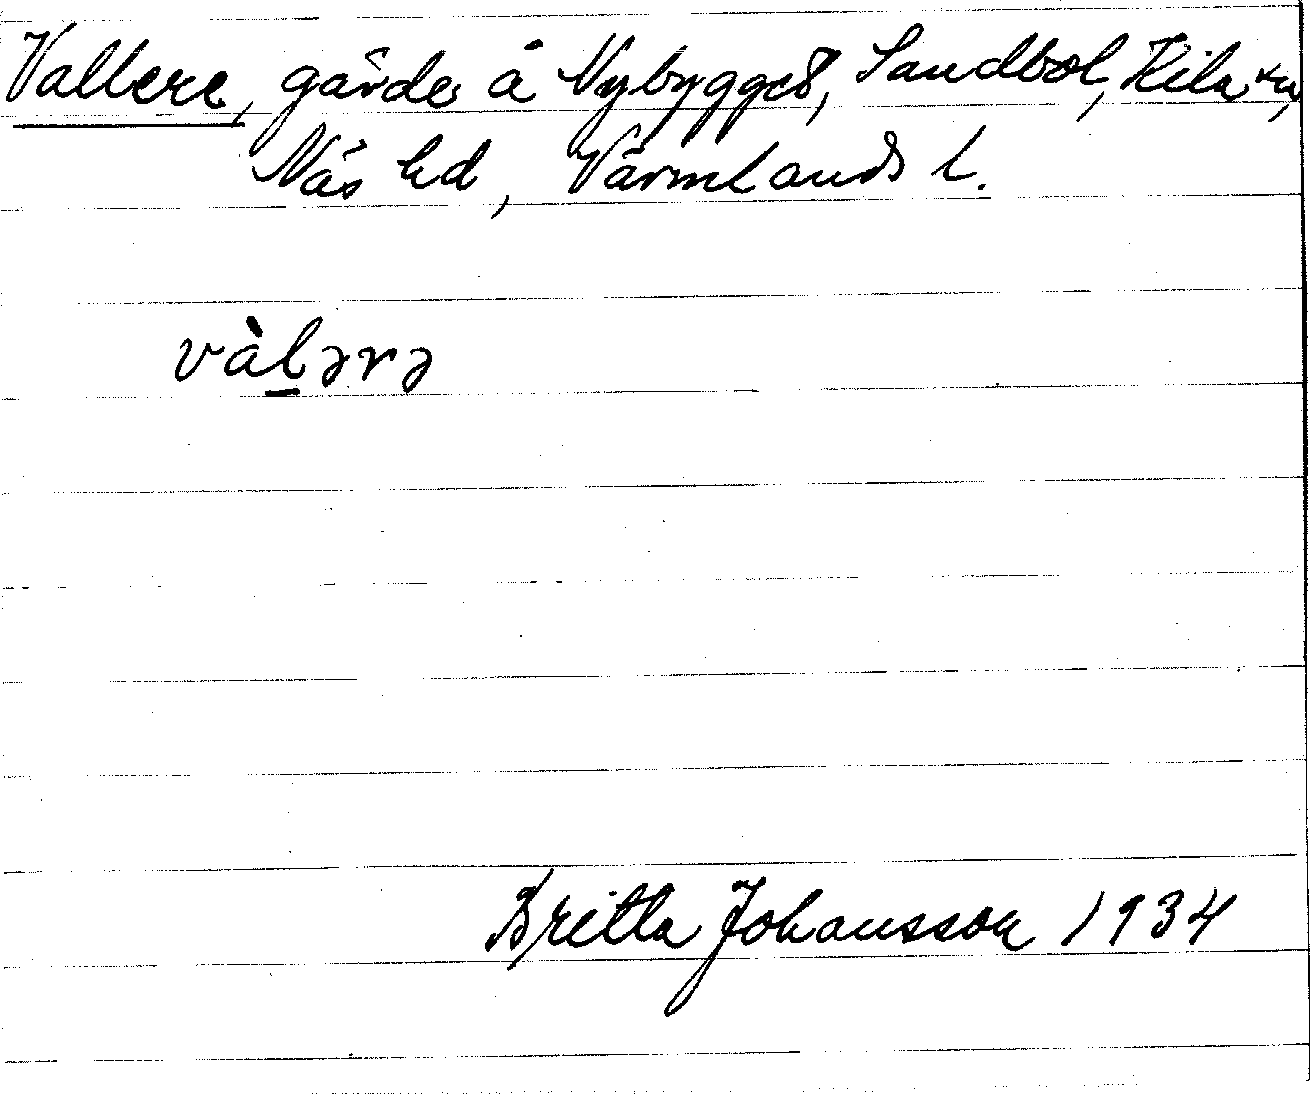 Vallere, gärde å Nybygget, Sandbol, Kila sn,
Näs hd, Värmlands l.
vàl̠ərə
Britta Johansson 1934